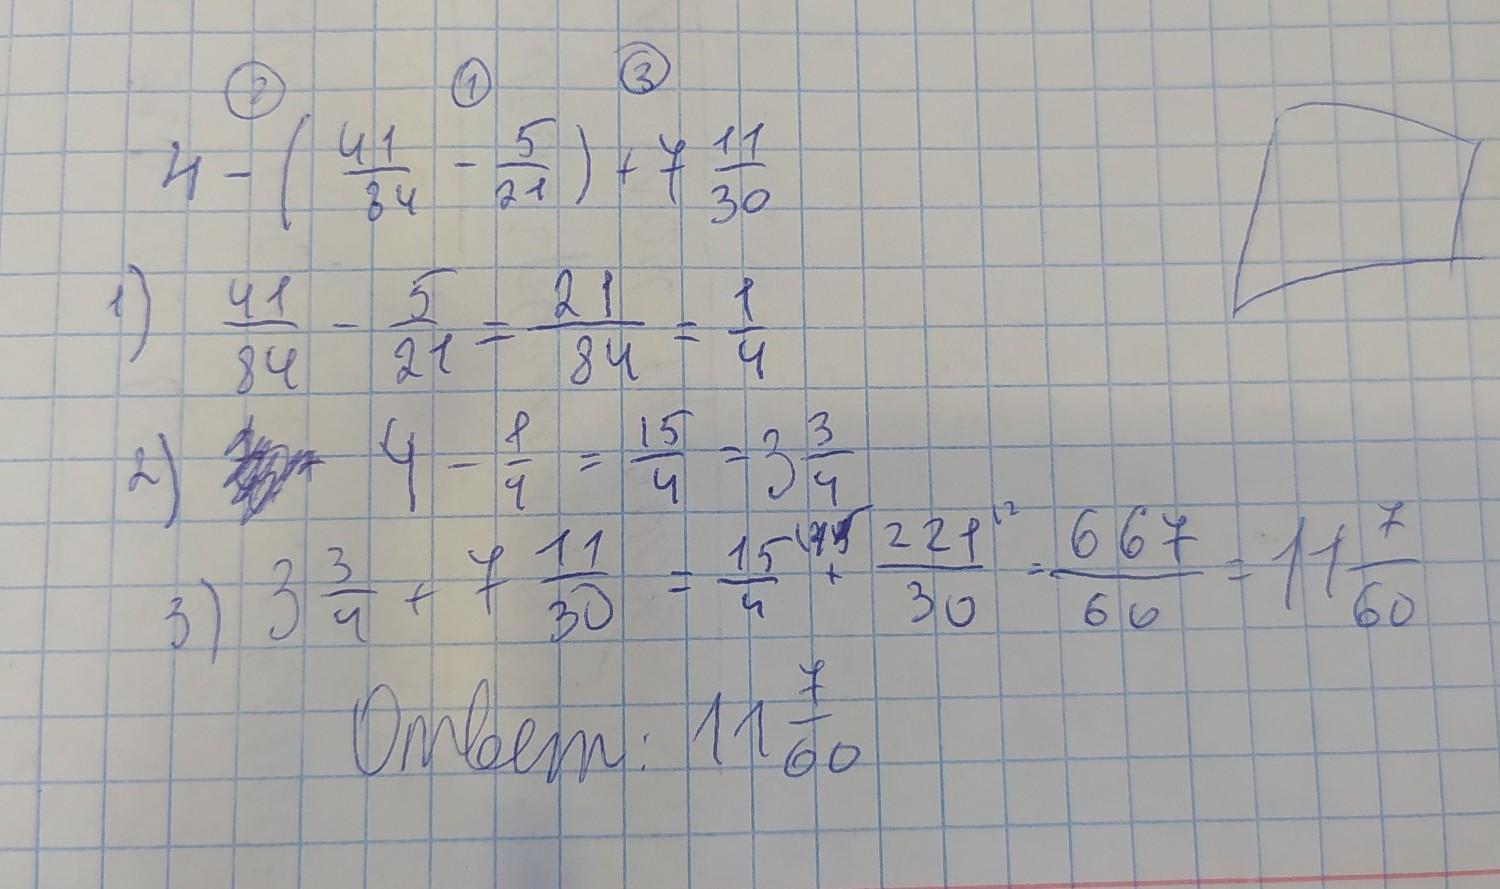 ② ① ③
4 - (41/84 - 5/21) + 7 11/30
1) 41/84 - 5/21 = 21/84 = 1/4
2) 4 - 1/4 = 15/4 = 3 3/4
3) 3 3/4 + 7 11/30 = 15/4 + 221/30 = 667/60 = 11 7/60
Ответ: 11 7/60